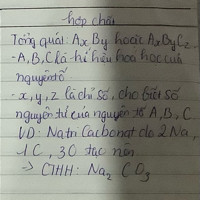 hợp chất
Tổng quát: AxBy hoặc AxByCz
- A, B, C là kí hiệu hoá học của
nguyên tố.
- x, y, z là chỉ số, cho biết số
nguyên tử của nguyên tố A, B, C.
VD: Natri Carbonat do 2 Na,
1 C, 3 O tạo nên
=> CTHH: Na2 CO3